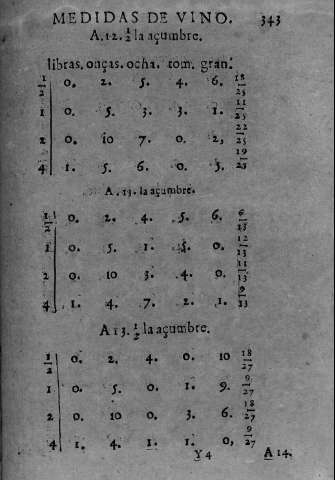 MEDIDAS DE VINO. 343
A.12. 1/2 la açumbre.
libras. onças. ocha. tom. gran.
1/2 0. 2. 5. 4. 6. 18/25
1 0. 5. 3. 3. 1. 11/25
2 0. 10 7. 0. 2, 22/25
4 1. 5. 6. 0. 5. 19/25
A. 13. la açumbre.
1/2 0. 2. 4. 5. 6. 6/13
1 0. 5. 1. 5. 0. 12/13
2 0. 10 3. 4. 0. 11/13
4 1. 4. 7. 2. 1. 9/13
A 13. 1/2 la açumbre.
1/2 0. 2. 4. 0. 10 18/27
1 0. 5. 0. 1. 9. 9/27
2 0. 10 0. 3. 6. 18/27
4 1. 4. 1. 1. 0, 9/27
Y 4 A 14.